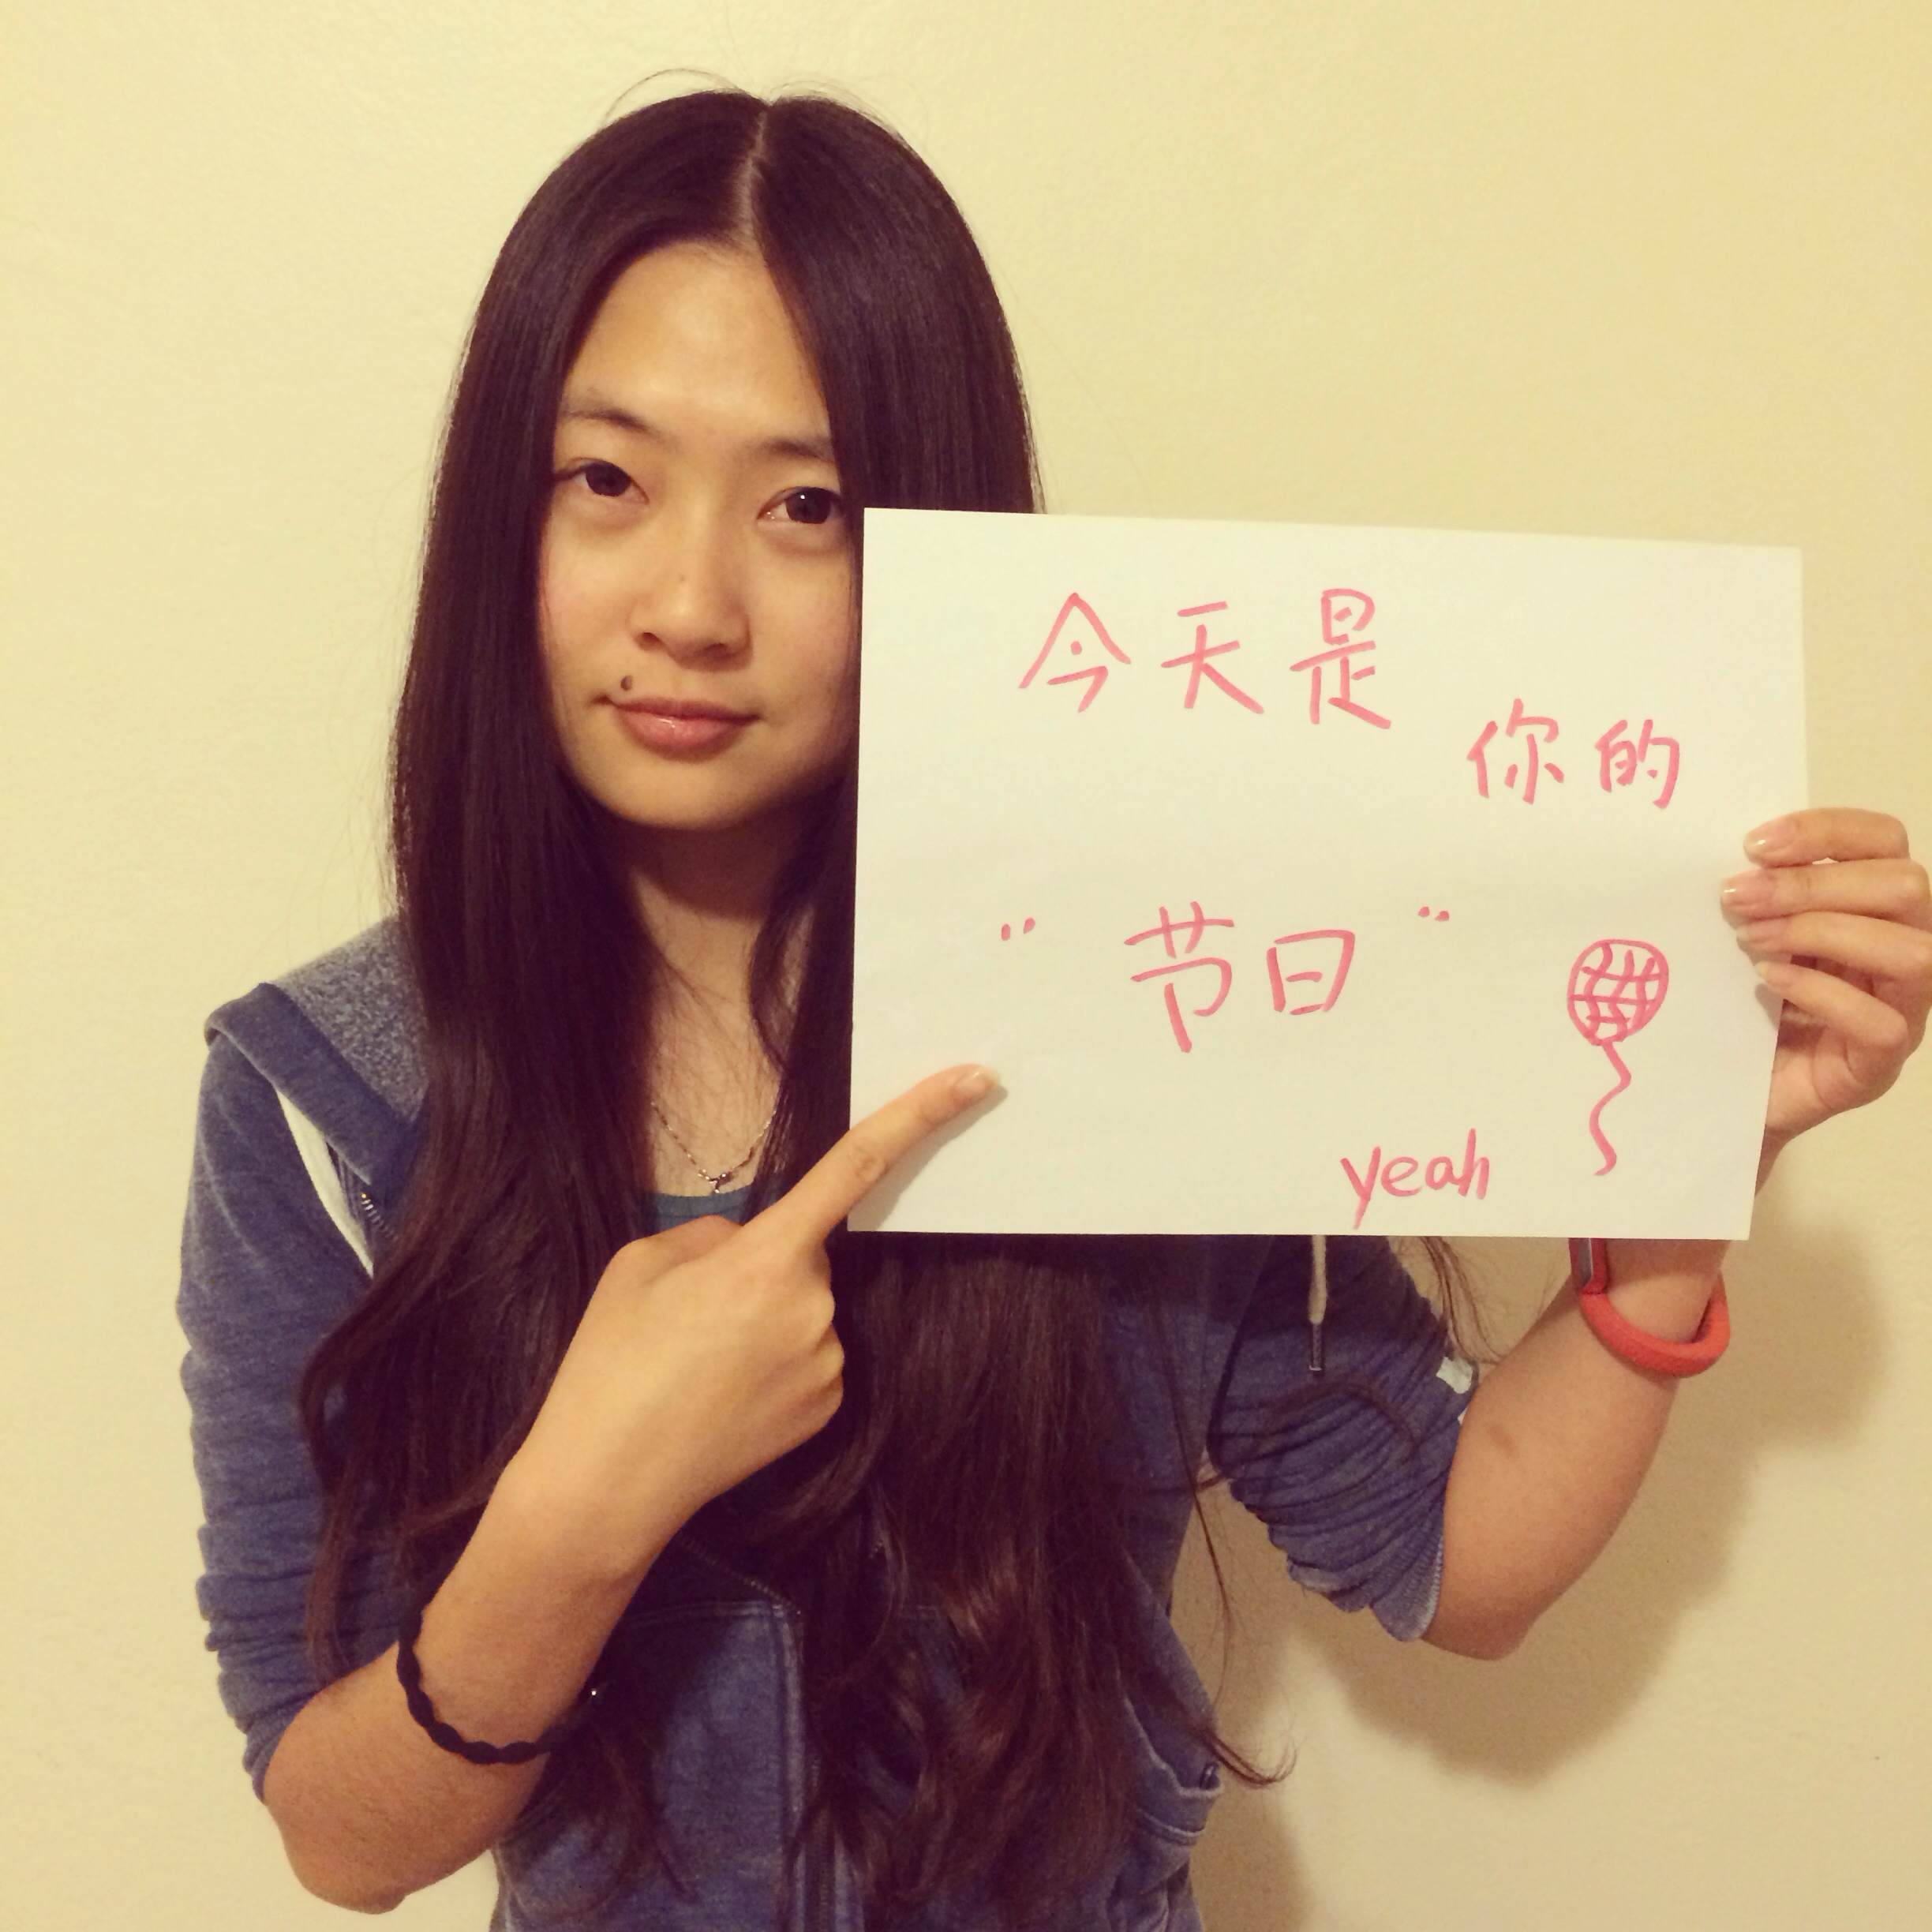 今天是
你的
"节日"
yeah